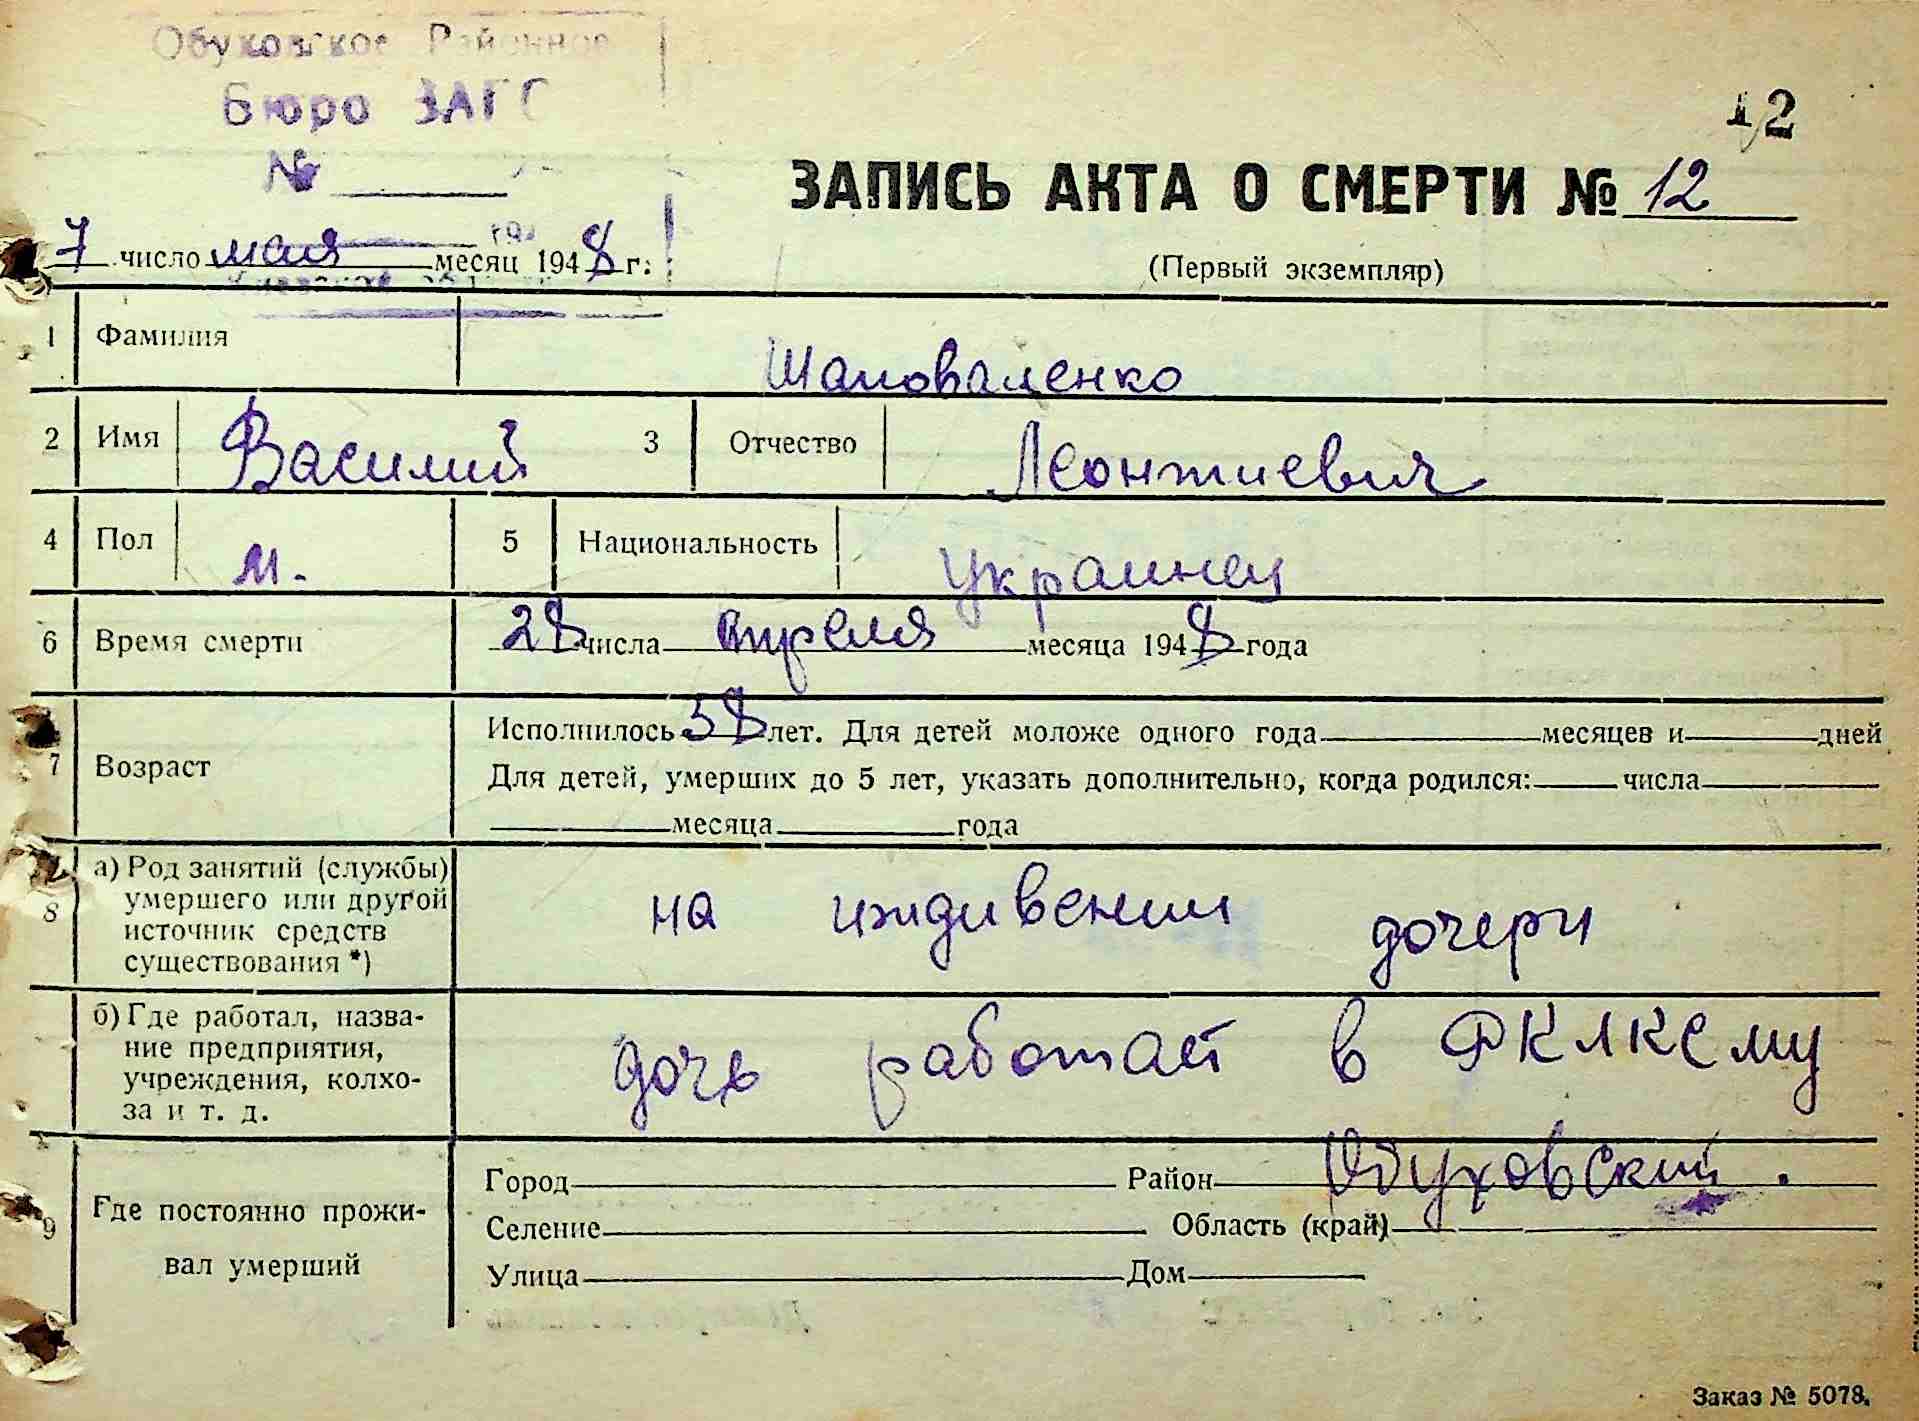 Обуховское Районное
Бюро ЗАГС
№
12
ЗАПИСЬ АКТА О СМЕРТИ № 12
7 число мая месяц 1948 г.
Киевской
(Первый экземпляр)
1 Фамилия Шаповаленко
2 Имя Василий 3 Отчество Леонтиевич
4 Пол м. 5 Национальность украинец
6 Время смерти 28 числа апреля месяца 1948 года
Исполнилось 58 лет. Для детей моложе одного года месяцев и дней
7 Возраст
Для детей, умерших до 5 лет, указать дополнительно, когда родился: числа
месяца года
8 а) Род занятий (службы)
умершего или другой
источник средств
существования *)
на иждивении дочери
б) Где работал, назва-
ние предприятия,
учреждения, колхо-
за и т. д.
дочь работает в РКЛКСМУ
9 Где постоянно прожи-
вал умерший
Город Район Обуховский.
Селение Область (край)
Улица Дом
Заказ № 5078.